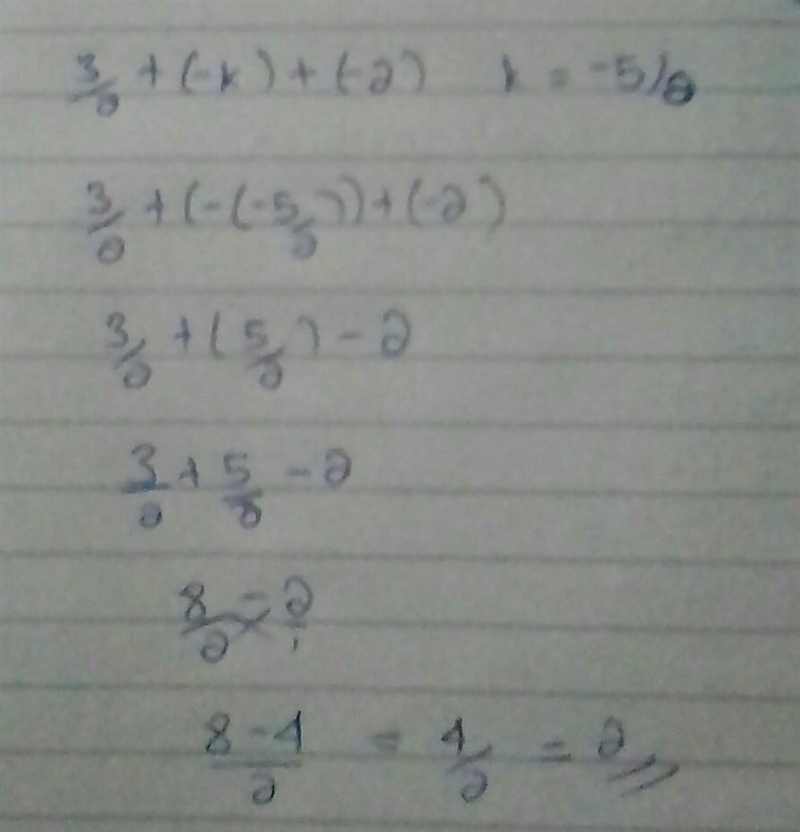 3/2 + (-k) + (-2) k = -5/2
3/2 + (-(-5/2)) + (-2)
3/2 + (5/2) - 2
3/2 + 5/2 - 2
8/2 - 2/1
8-4/2 = 4/2 = 2//